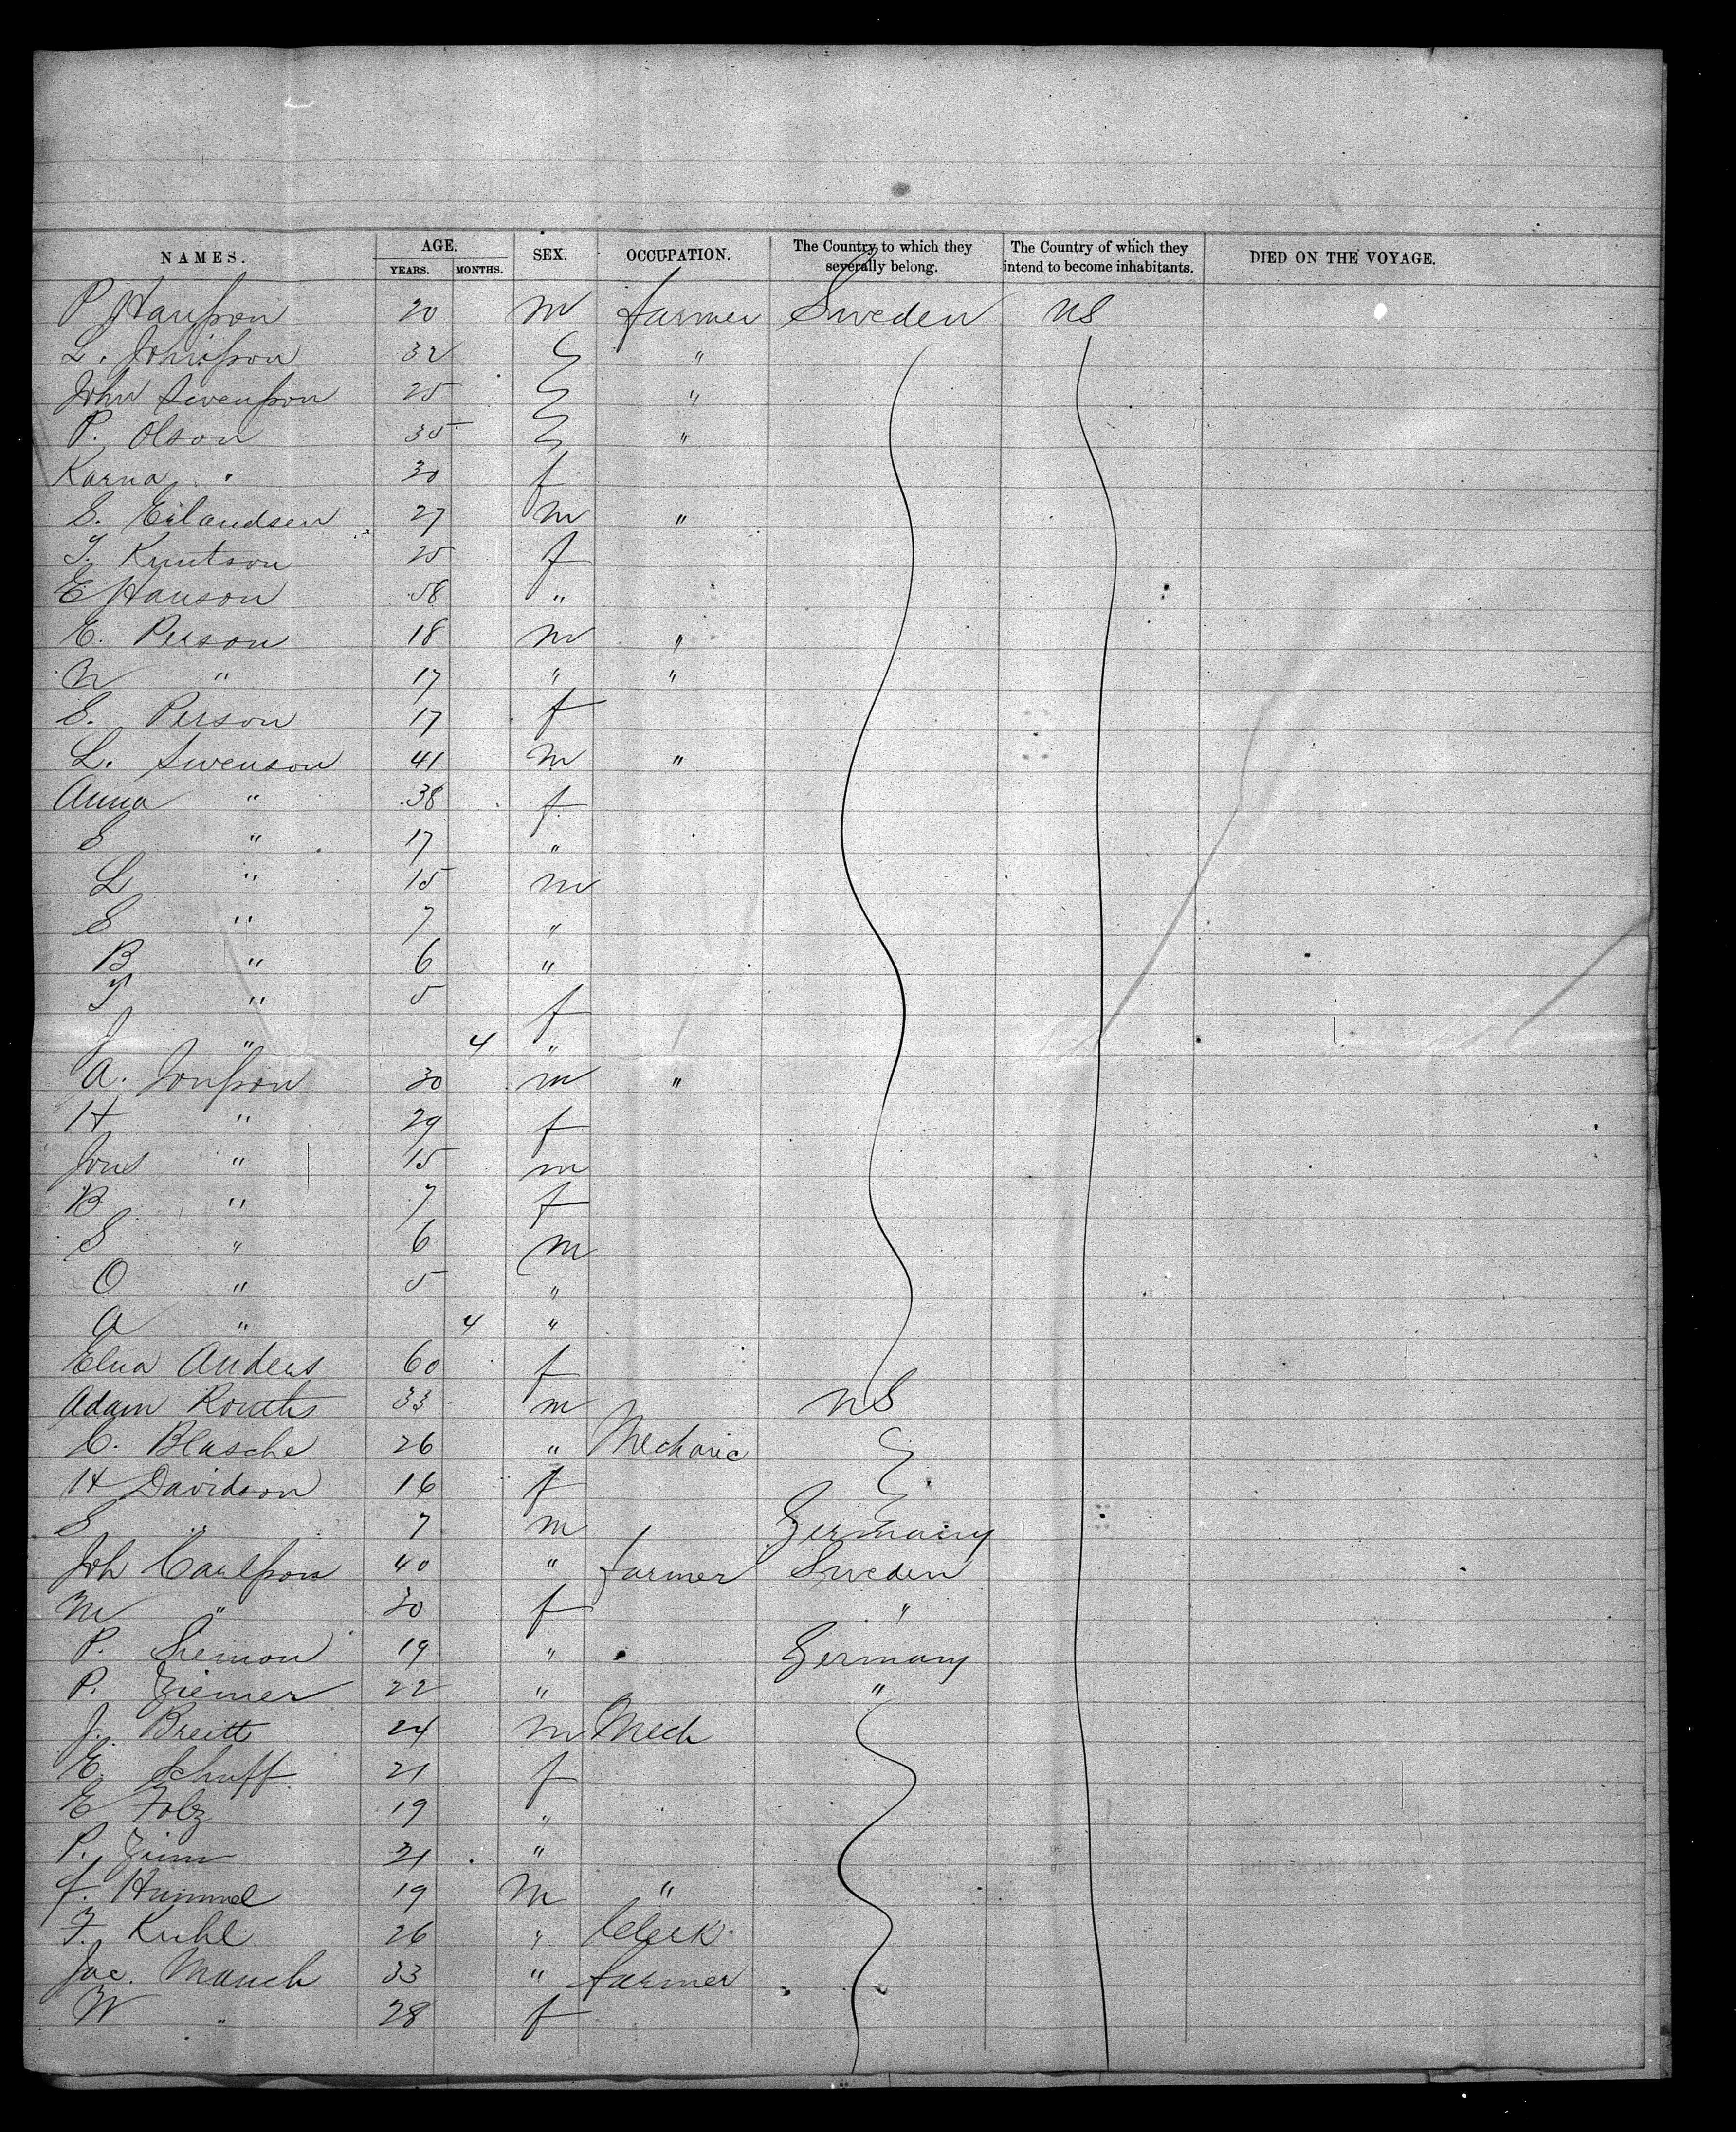 NAMES. AGE. YEARS. MONTHS. SEX. OCCUPATION. The Country to which they severally belong. The Country of which they intend to become inhabitants. DIED ON THE VOYAGE.
P Hansson 20 m farmer Sweden US
L. Johnsson 32 "
John Swensson 25 "
P. Olson 35 "
Karna " 30 f
S. Erlandsen 27 m "
T. Knutson 25 f
E Hanson 58 "
E. Person 18 m "
N " 17 " "
S. Person 17 f
L. Swenson 41 m "
Anna " 38 f
S " 17 "
L " 15 m
S " 7 "
B " 6 "
T " 5 f
J " 4 "
A. Jonsson 30 m "
H " 29 f
Jons " 15 m
B " 7 f
S " 6 m
O " 5 "
A " 4 "
Elna Anders 60 f
Adam 33 m US
C. Blasche 26 " Mechanic
H Davidson 16 f
S " 7 m Germany
Joh Carlsson 40 " farmer Sweden
M " 30 f "
P. Siemon 19 " Germany
P. Ziemer 22 " "
J. Breitt 24 m Mech
E. Schuff 21 f
E Folz 19 "
P. Zinn 21 "
f. Hummel 19 m "
F. Kuhl 26 " Clerk
Jac. Mauch 33 " farmer
W " 28 f